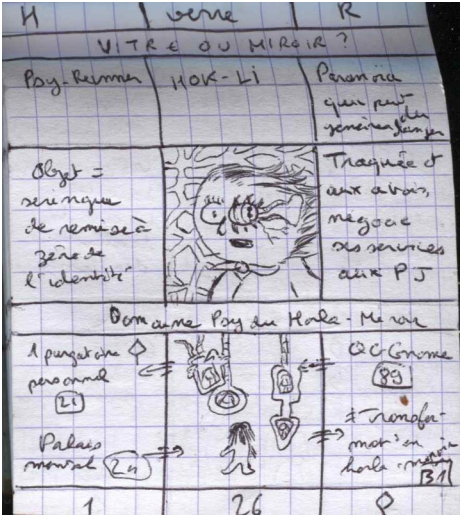 H verre R
VITRE OU MIROIR ?
Psy-Runner
HOK-LI
Paranoïa
qui peut
générer du
danger
Objet =
seringue
de remise à
zéro de
l'identité
Traquée et
aux abois,
négocie
ses services
aux PJ
Domaine Psy du Horla-Miroir
1 purgatoire
personnel
21
Palais
mental
QG Gnome
89
Transfor-
mat° en
horla-
B1
1 26